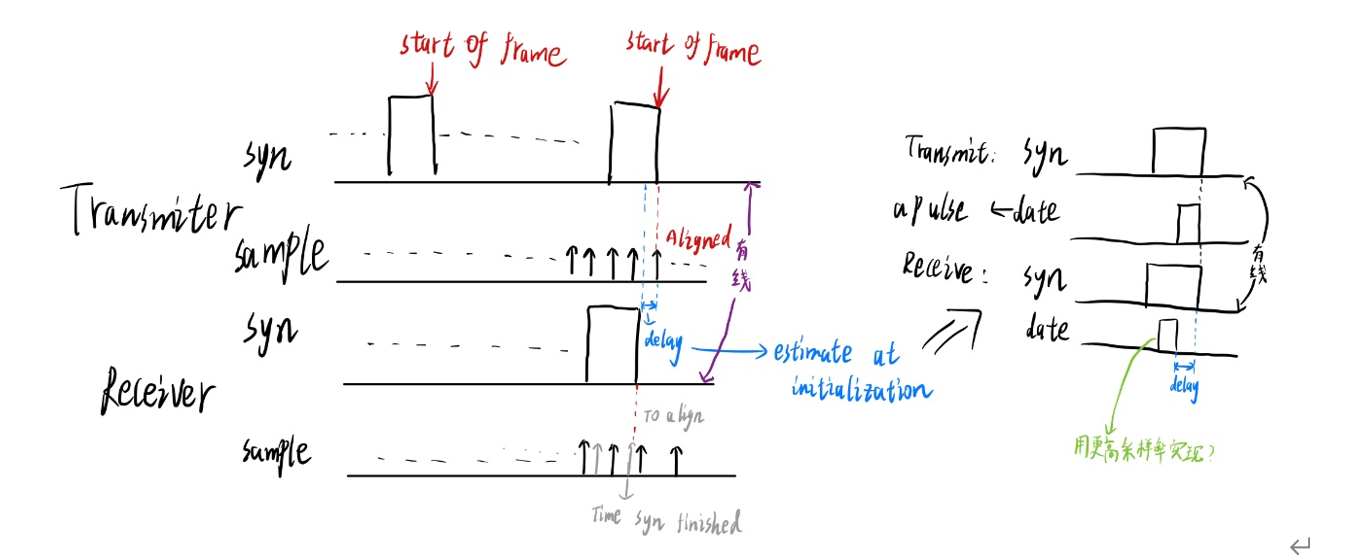 start of frame
start of frame
syn
Transmiter
sample
Aligned
有线
syn
delay
estimate at
initialization
Receiver
To align
sample
Time syn finished
Transmit: syn
a pulse ← date
Receive: syn
date
有线
delay
用更高采样率实现?